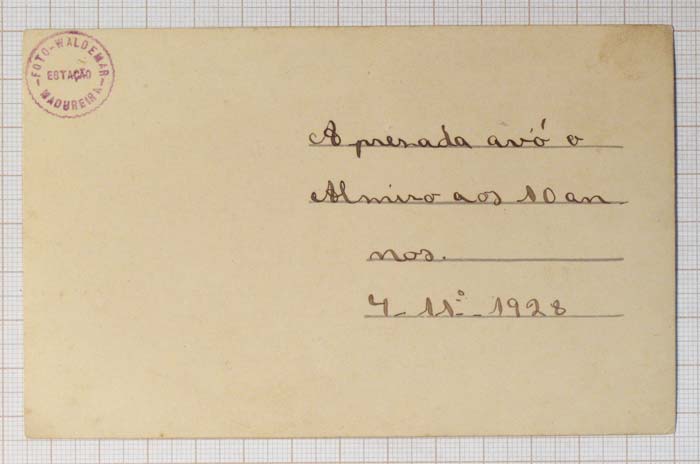 FOTO-WALDEMAR
ESTAÇÃO
MADUREIRA
A presada avó o
Almiro aos 10 an
nos.
4-11º-1928